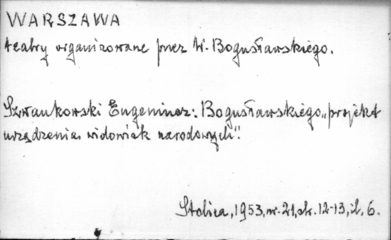 WARSZAWA
teatry organizowane przez W. Bogusławskiego.
Szwankowski Eugeniusz: Bogusławskiego „projekt
urządzenia widowisk narodowych".
Stolica, 1953, nr 21, st. 12-13, il. 6.